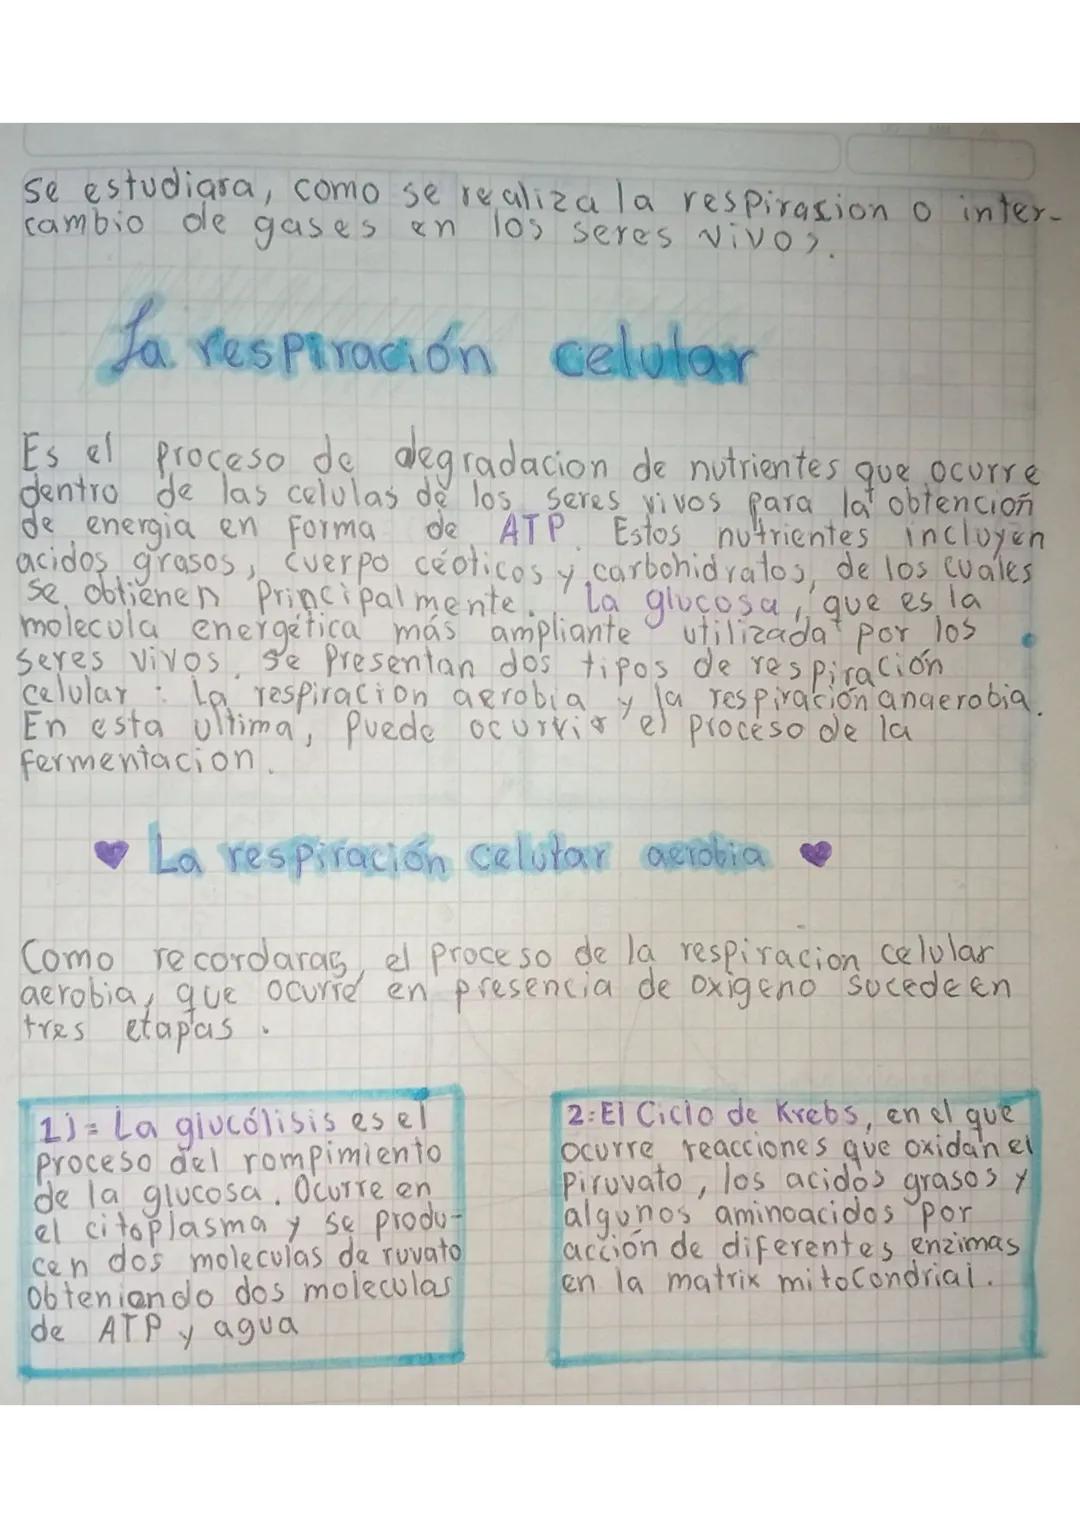 se estudiara, como se realiza la respirasion o inter-
cambio de gases en los seres vivos.
La respiración celular
Es el proceso de degradacion de nutrientes que ocurre
dentro de las celulas de los seres vivos para la obtencion
de energia en forma de ATP. Estos nutrientes incluyen
acidos grasos, cuerpo céoticos y carbohidratos, de los cuales
se obtienen principalmente. La glucosa, que es la
molecula energética más ampliante utilizada por los
seres vivos. Se presentan dos tipos de respiración
celular: La respiracion aerobia y la respiración anaerobia.
En esta ultima, puede ocurrir el proceso de la
fermentacion.
La respiración celular aerobia
Como recordaras, el proceso de la respiracion celular
aerobia, que ocurre en presencia de oxigeno sucede en
tres etapas.
1)= La glucólisis es el
proceso del rompimiento
de la glucosa. Ocurre en
el citoplasma y se produ-
cen dos moleculas de ruvato
obteniendo dos moleculas
de ATP y agua
2:El Ciclo de Krebs, en el que
ocurre reacciones que oxidan el
piruvato, los acidos grasos y
algunos aminoacidos por
acción de diferentes enzimas
en la matrix mitocondrial.